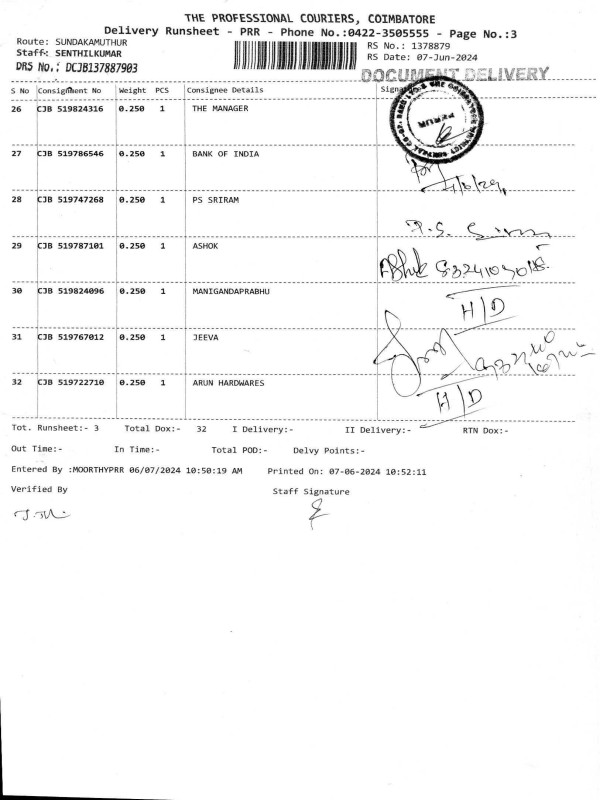 THE PROFESSIONAL COURIERS, COIMBATORE
Delivery Runsheet - PRR - Phone No.:0422-3505555 - Page No.:3
Route: SUNDAKAMUTHUR
Staff: SENTHILKUMAR
DRS No.: DCJB137887903
RS No.: 1378879
RS Date: 07-Jun-2024
DOCUMENT DELIVERY
S No Consignment No Weight PCS Consignee Details
26 CJB 519824316 0.250 1 THE MANAGER
27 CJB 519786546 0.250 1 BANK OF INDIA
28 CJB 519747268 0.250 1 PS SRIRAM
P.S.
29 CJB 519787101 0.250 1 ASHOK
Ashok
30 CJB 519824096 0.250 1 MANIGANDAPRABHU
H/D
31 CJB 519767012 0.250 1 JEEVA
32 CJB 519722710 0.250 1 ARUN HARDWARES
H/D
Tot. Runsheet:- 3 Total Dox:- 32 I Delivery:- II Delivery:- RTN Dox:-
Out Time:- In Time:- Total POD:- Delvy Points:-
Entered By :MOORTHYPRR 06/07/2024 10:50:19 AM Printed On: 07-06-2024 10:52:11
Verified By Staff Signature